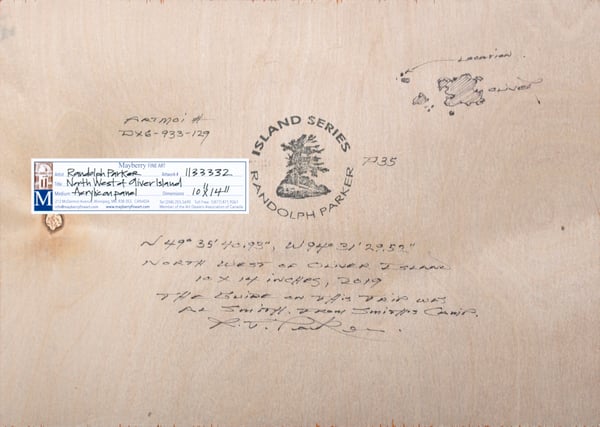 LOCATION
OLIVER
ARTMOI #
DX6-933-129
ISLAND SERIES
RANDOLPH PARKER
P35
Mayberry FINE ART
Artist Randolph Parker Artwork # 1133332
Title North West of Oliver Island
Medium Acrylic on panel Dimensions 10"X14"
M
info@mayberryfineart.com www.mayberryfineart.com Member of the Art Dealers Association of Canada
N 49° 35' 40.93", W 94° 31' 29.52"
NORTH WEST OF OLIVER ISLAND
10 X 14 INCHES, 2019
THE GUIDE ON THIS TRIP WAS
AL SMITH. FROM SMITHS CAMP.